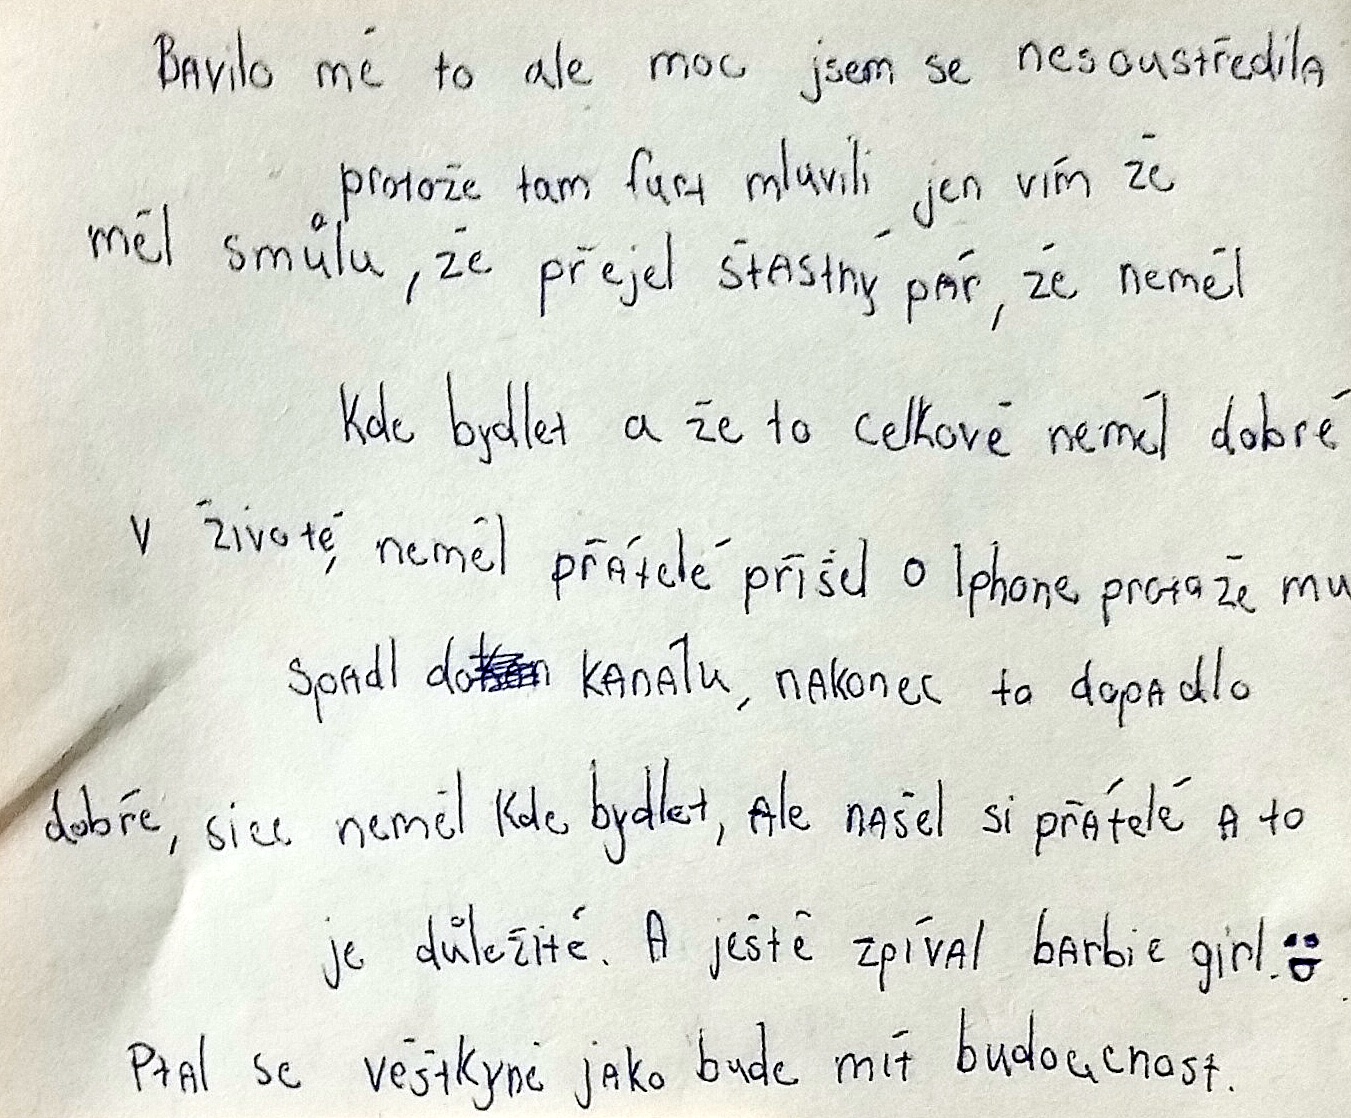 Bavilo mě to ale moc jsem se nesoustředila
protože tam furt mluvili jen vím že
měl smůlu, že přejel šťastný pár, že neměl
kde bydlet a že to celkově neměl dobré
v životě, neměl přátelé přišel o Iphone protože mu
spadl do kanálu, nakonec to dopadlo
dobře, sice neměl kde bydlet, ale našel si přátelé a to
je důležité. A ještě zpíval barbie girl.
Ptal se věštkyně jako bude mít budoucnost.